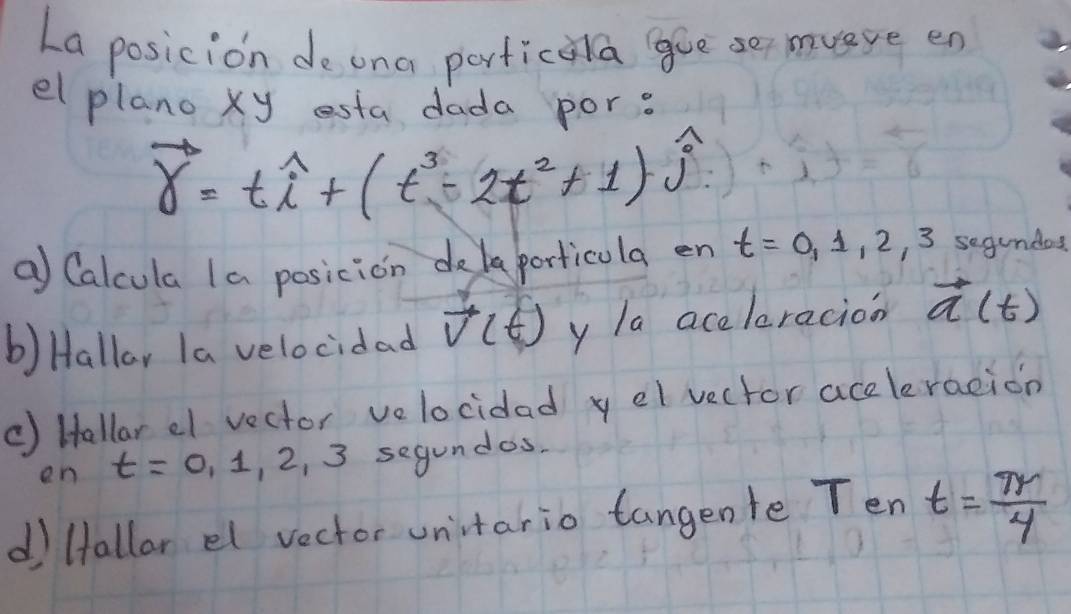 La posición de una particula que se mueve en
el plano xy esta dada por:
r⃗ = t î + (t³ - 2t² + 1) ĵ
a) Calcula la posición de la particula en t = 0, 1, 2, 3 segundos
b) Hallar la velocidad v⃗(t) y la aceleración a⃗(t)
c) Hallar el vector velocidad y el vector aceleración
en t = 0, 1, 2, 3 segundos.
d) Hallar el vector unitario tangente T en t = π/4